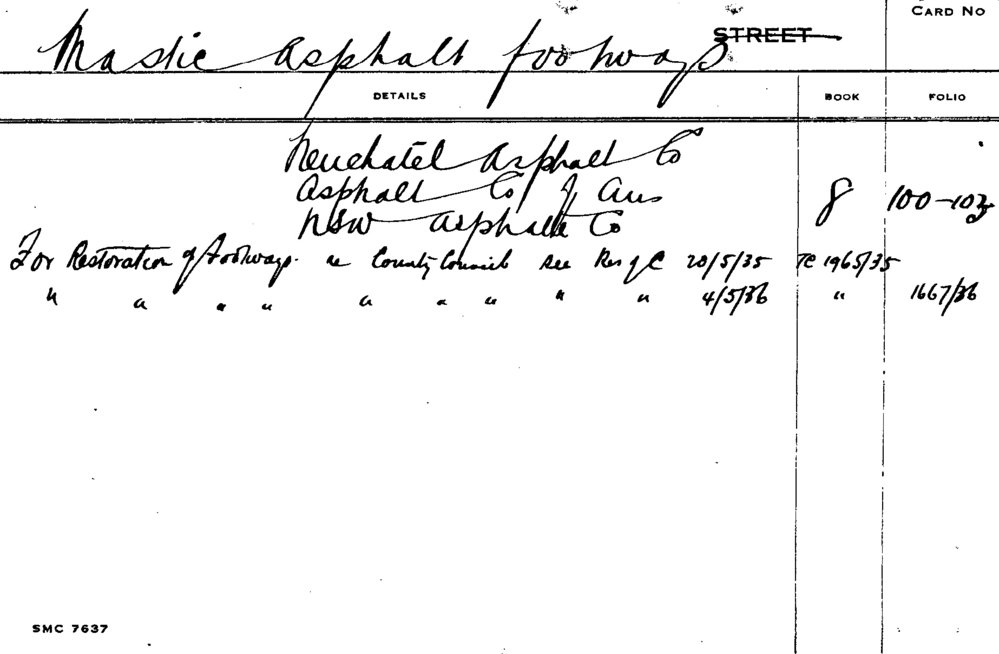 CARD NO
Mastic Asphalt footways STREET
DETAILS BOOK FOLIO
Neuchatel Asphalt Co
Asphalt Co of Aus 8 100-103
NSW Asphalt Co
For Restoration of Footways. re County Council see Res of C 20/5/35 TC 1965/35
" " " " " " " " " 4/5/36 " 1667/36
SMC 7637